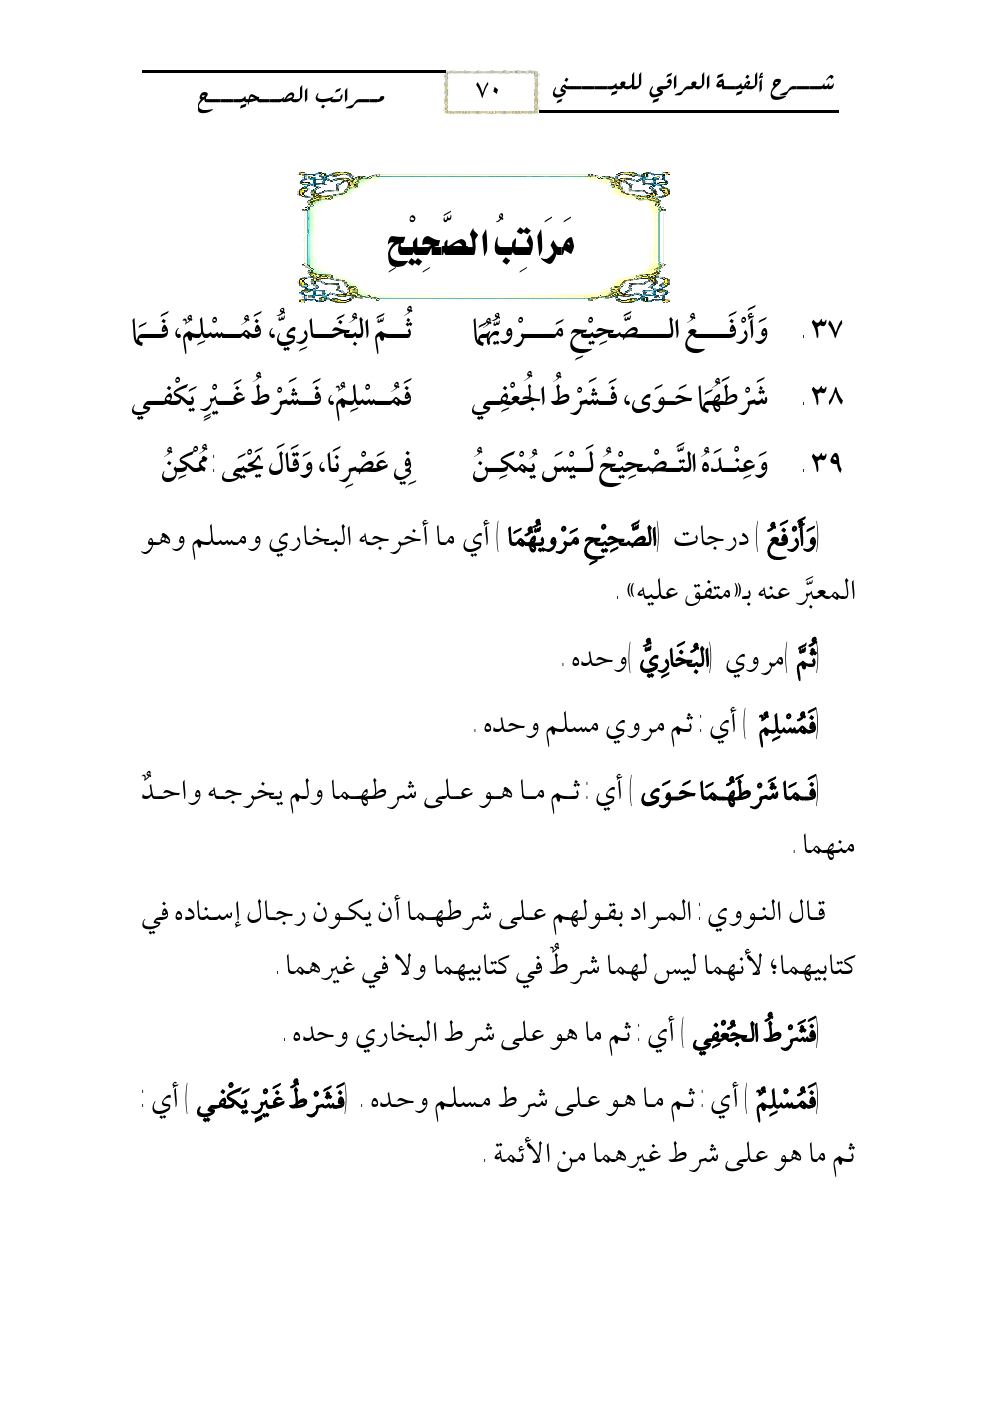 شرح ألفية العراقي للعيني
٧٠
مراتب الصحيح
مَرَاتِبُ الصَّحِيْحِ
٣٧. وَأَرْفَعُ الصَّحِيْحِ مَرْويُّهُمَا ثُمَّ البُخَارِيُّ، فَمُسْلِمٌ، فَمَا
٣٨. شَرْطَهُمَا حَوَى، فَشَرْطُ الجُعْفِي فَمُسْلِمٌ، فَشَرْطُ غَيْرٍ يَكْفي
٣٩. وَعِنْدَهُ التَّصْحِيْحُ لَيْسَ يُمْكِنُ فِي عَصْرِنَا، وَقَالَ يَحْيَى: مُمْكِنُ
(وَأَرْفَعُ) درجات (الصَّحِيْحِ مَرْويُّهُمَا) أي ما أخرجه البخاري ومسلم وهو
المعبَّر عنه بـ«متفق عليه».
(ثُمَّ) مروي (البُخَارِيُّ) وحده.
(فَمُسْلِمٌ) أي: ثم مروي مسلم وحده.
(فَمَا شَرْطَهُمَا حَوَى) أي: ثم ما هو على شرطهما ولم يخرجه واحدٌ
منهما.
قال النووي: المراد بقولهم على شرطهما أن يكون رجال إسناده في
كتابيهما؛ لأنهما ليس لهما شرطٌ في كتابيهما ولا في غيرهما.
(فَشَرْطُ الجُعْفِي) أي: ثم ما هو على شرط البخاري وحده.
(فَمُسْلِمٌ) أي: ثم ما هو على شرط مسلم وحده. (فَشَرْطُ غَيْرٍ يَكْفي) أي:
ثم ما هو على شرط غيرهما من الأئمة.